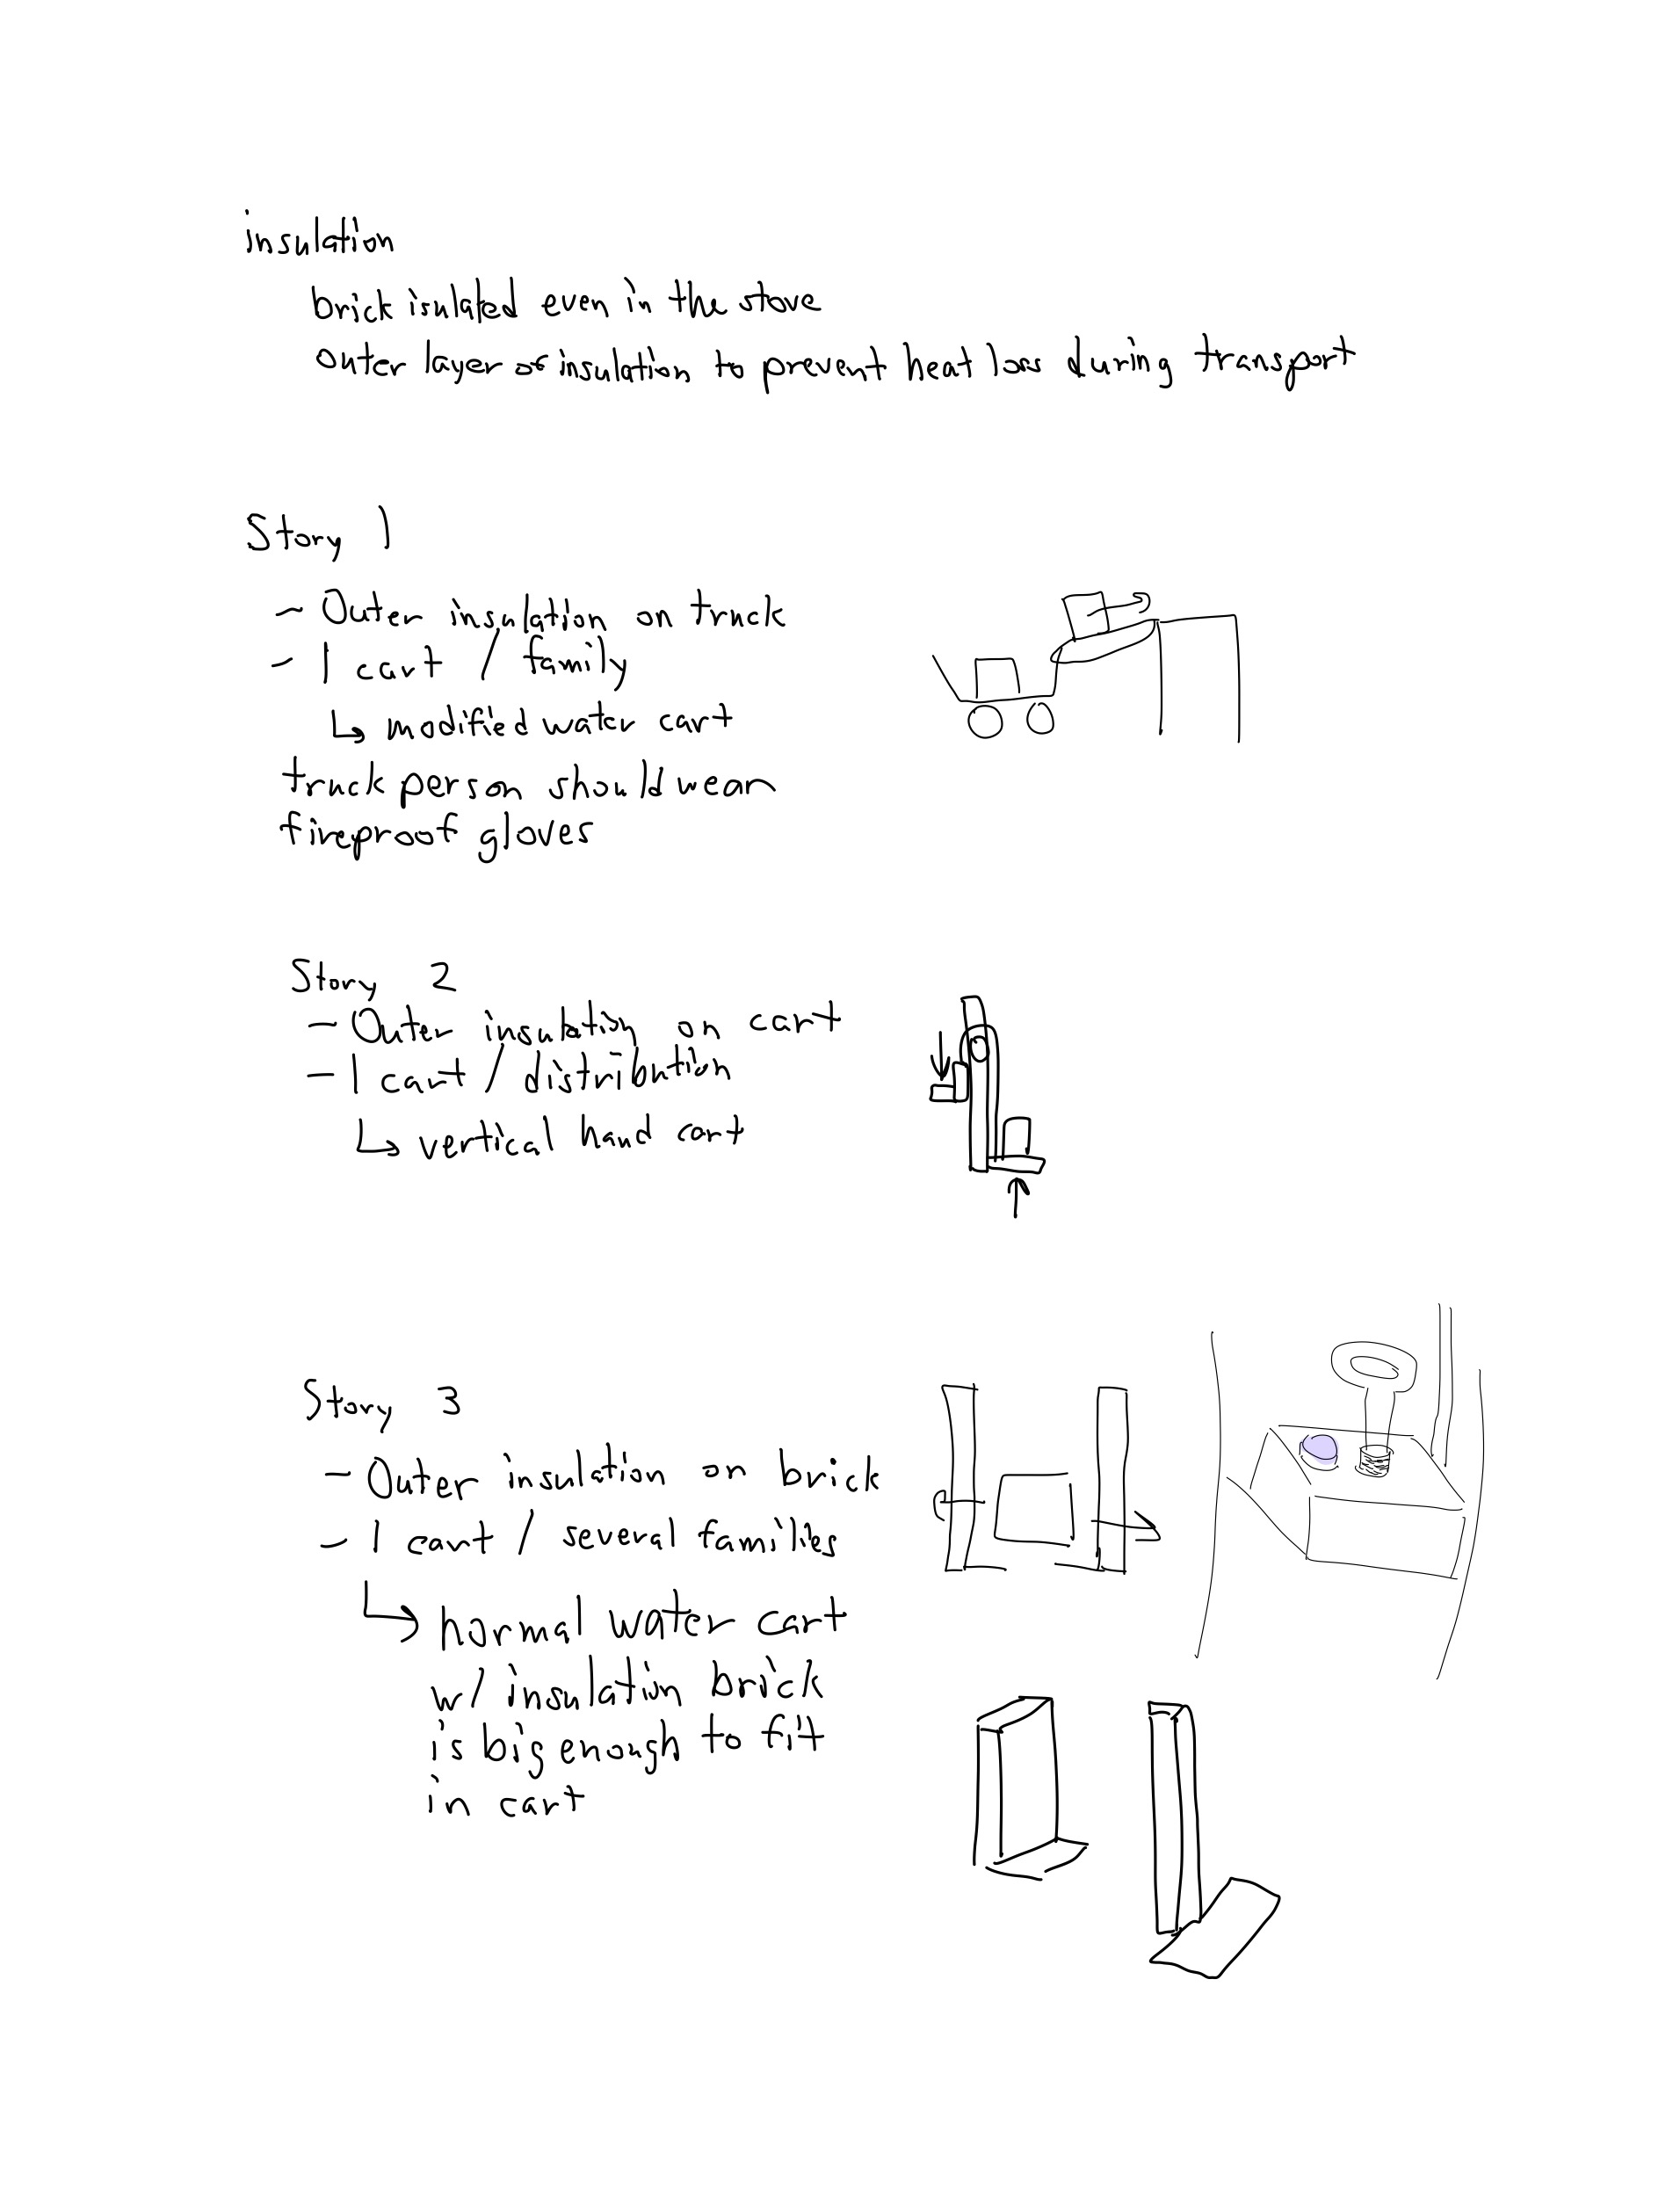 insulation
brick isulated even in the stove
outer layer of insulation to prevent heat loss during transport
Story 1
- Outer insulation on truck
- 1 cart / family
↳ modified water cart
truck person should wear
fireproof gloves
Story 2
- Outer insulation on cart
- 1 cart / distribution
↳ vertical hand cart
Story 3
- Outer insulation on brick
- 1 cart / several families
↳ normal water cart
w/ insulation brick
is big enough to fit
in cart